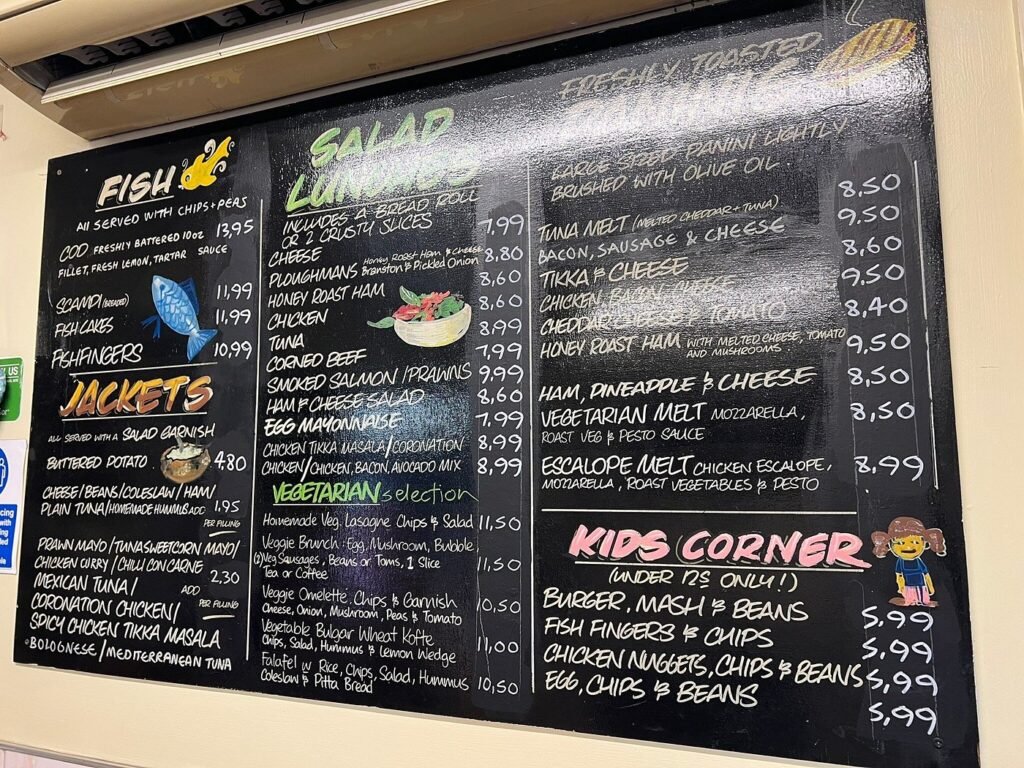 FISH
All SERVED WITH CHIPS + PEAS
COD FRESHLY BATTERED 10oz 13,95
FILLET, FRESH LEMON, TARTAR SAUCE
SCAMPI (BREADED) 11,99
FISH CAKES 11,99
FISHFINGERS 10,99
JACKETS
ALL SERVED WITH A SALAD GARNISH
BUTTERED POTATO 4.80
CHEESE/BEANS/COLESLAW/HAM/
PLAIN TUNA/HOMEMADE HUMMUS ADD 1,95
PER FILLING
PRAWN MAYO/TUNA SWEETCORN MAYO/
CHICKEN CURRY/CHILLI CON CARNE
MEXICAN TUNA/ ADD 2.30
CORONATION CHICKEN/ PER FILLING
SPICY CHICKEN TIKKA MASALA
BOLOGNESE/MEDITERRANEAN TUNA
SALAD
LUNCHES
INCLUDES A BREAD ROLL
OR 2 CRUSTY SLICES
CHEESE 7,99
PLOUGHMANS Honey Roast Ham & Cheese Branston & Pickled Onion 8,80
HONEY ROAST HAM 8,60
CHICKEN 8,60
TUNA 8,99
CORNED BEEF 7,99
SMOKED SALMON/PRAWNS 9,99
HAM & CHEESE SALAD 8,60
EGG MAYONNAISE 7.99
CHICKEN TIKKA MASALA/CORONATION 8,99
CHICKEN/CHICKEN, BACON, AVOCADO MIX 8,99
VEGETARIAN selection
Homemade Veg. Lasagne Chips & Salad 11,50
Veggie Brunch: Egg, Mushroom, Bubble
(2) Veg Sausages, Beans or Toms, 1 Slice 11,50
Tea or Coffee
Veggie Omelette Chips & Garnish 10,50
Cheese, Onion, Mushroom, Peas & Tomato
Vegetable Bulgar Wheat Kofte
Chips, Salad, Hummus & Lemon Wedge 11,00
Falafel w Rice, Chips, Salad, Hummus
Coleslaw & Pitta Bread 10,50
FRESHLY TOASTED
PANINIS
LARGE SIZED PANINI LIGHTLY
BRUSHED WITH OLIVE OIL
TUNA MELT (MELTED CHEDDAR + TUNA) 8,50
BACON, SAUSAGE & CHEESE 9,50
TIKKA & CHEESE 8,60
CHICKEN, BACON, CHEESE 9,50
CHEDDAR CHEESE & TOMATO 8,40
HONEY ROAST HAM WITH MELTED CHEESE, TOMATO AND MUSHROOMS 9,50
HAM, PINEAPPLE & CHEESE 8,50
VEGETARIAN MELT MOZZARELLA, 8,50
ROAST VEG & PESTO SAUCE
ESCALOPE MELT CHICKEN ESCALOPE, 8,99
MOZZARELLA, ROAST VEGETABLES & PESTO
KIDS CORNER
(UNDER 12S ONLY!)
BURGER, MASH & BEANS 5,99
FISH FINGERS & CHIPS 5,99
CHICKEN NUGGETS, CHIPS & BEANS 5,99
EGG, CHIPS & BEANS 5,99